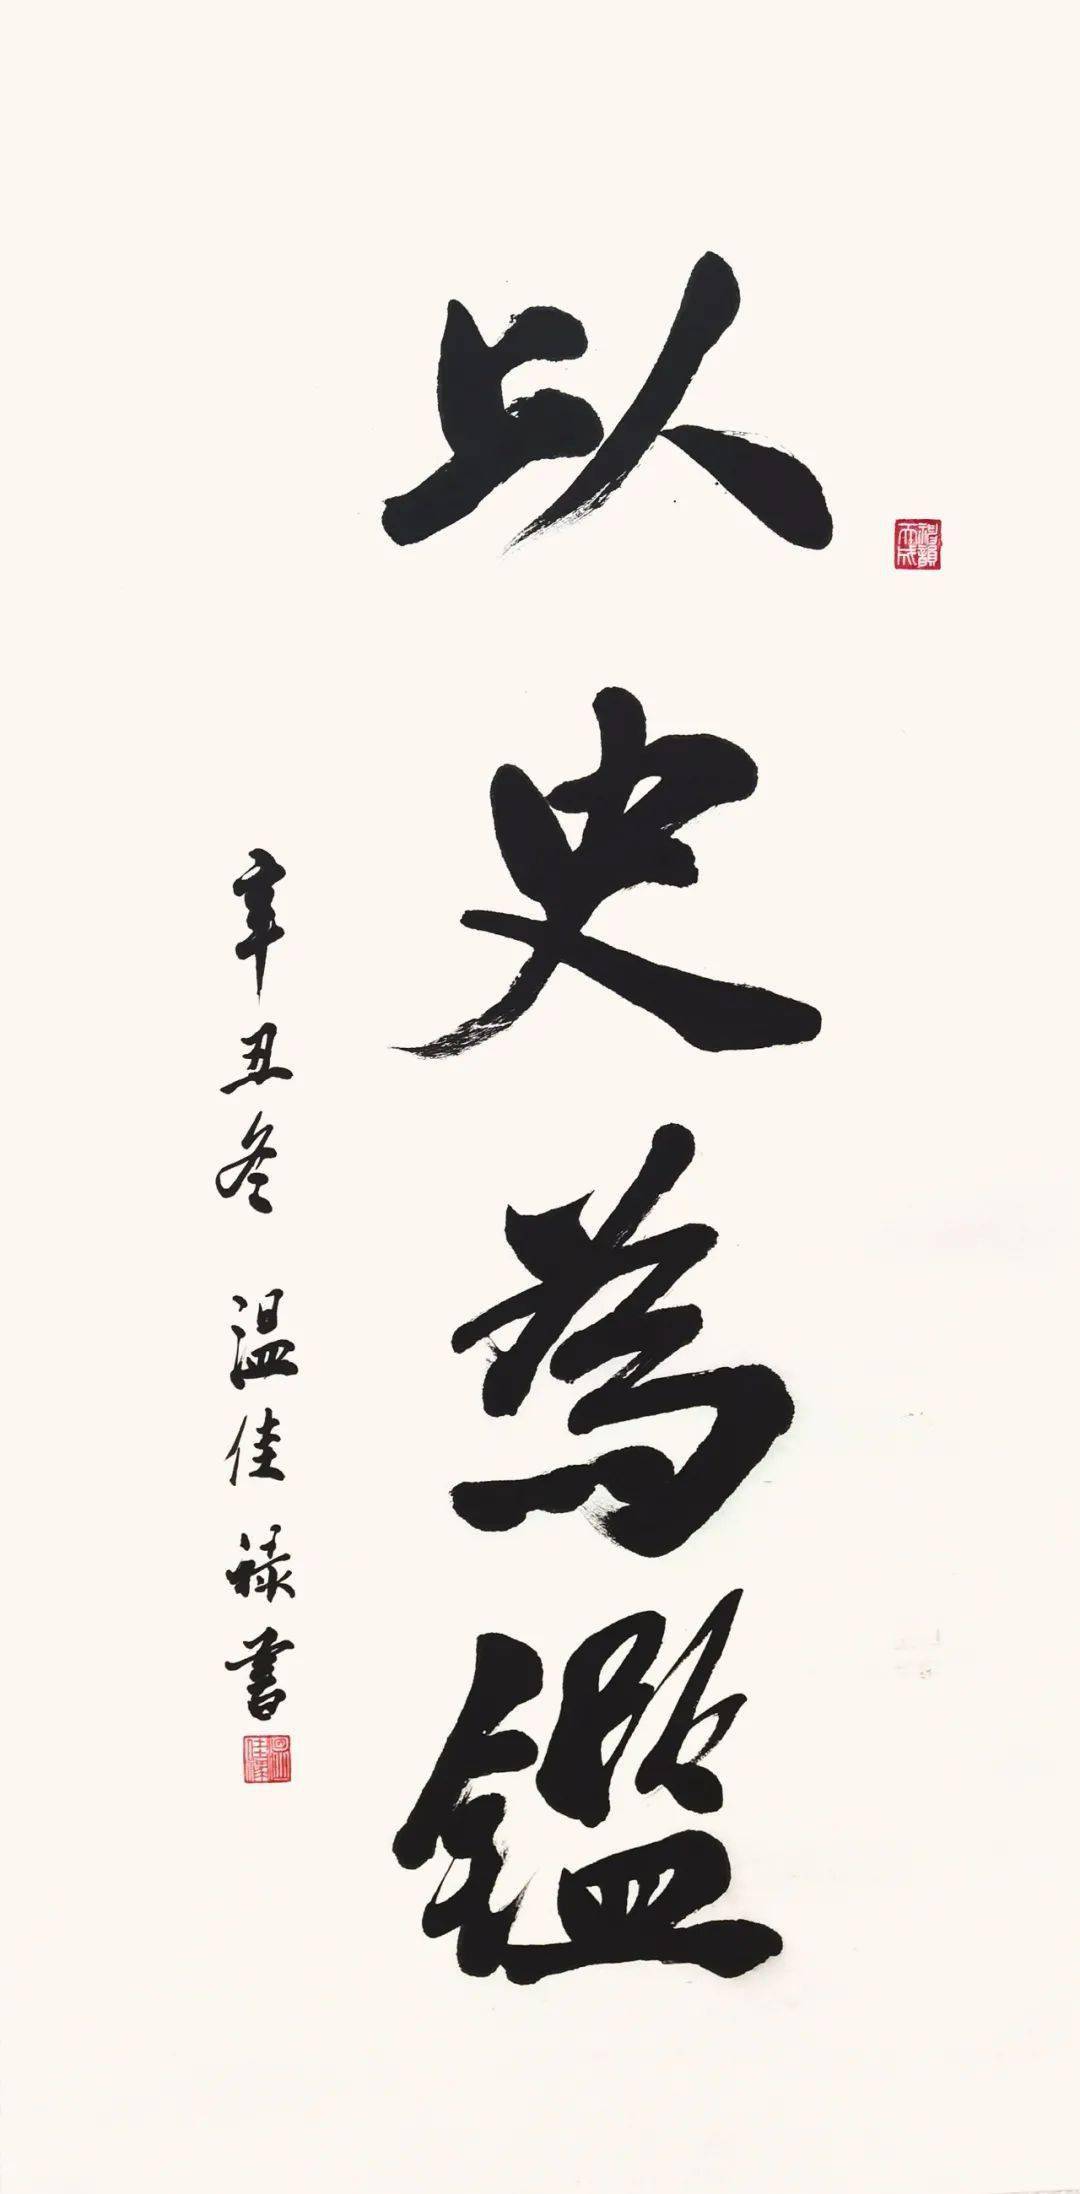 以史為鑑
辛丑冬 温佳禄書